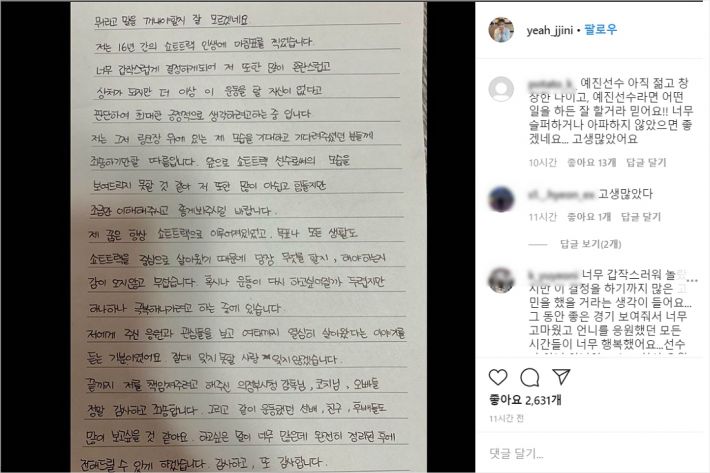 뭐라고 말을 꺼내야할지 잘 모르겠네요
저는 16년 간의 쇼트트랙 인생에 마침표를 찍었습니다.
너무 갑작스럽게 결정하게되어 저 또한 많이 혼란스럽고
상처가 되지만 더 이상 이 운동을 할 자신이 없다고
판단하여 최대한 긍정적으로 생각하려고하는 중 입니다
저는 그저 링크장 위에 있는 제 모습을 기대하고 기다려주셨던 분들께
죄송하기만할 따름입니다. 앞으로 쇼트트랙 선수로써의 모습을
보여드리지 못할 것 같아 저 또한 많이 아쉽고 힘들지만
조금만 이해해주시고 좋게봐주시길 바랍니다.
제 꿈은 항상 쇼트트랙으로 이루어져있었고. 목표나 모든 생활도
쇼트트랙을 중심으로 살아왔기 때문에 당장 무엇을 할지, 해야하는지
감이 오지않고 무섭습니다. 혹시나 운동이 다시 하고싶어질까 두렵지만
하나하나 극복해나가려고 하는 중에 있습니다.
저에게 주신 응원과 관심들을 보고 여태까지 열심히 살아왔다는 이야기를
듣는 기분이였어요. 절대 잊지 못할 사랑 잊지않겠습니다.
끝까지 저를 책임져주려고 해주신 의정부시청 감독님, 코치님, 오빠들
정말 감사하고 죄송합니다. 그리고 같이 운동했던 선배, 친구, 후배들도
많이 보고싶을 것 같아요. 하고싶은 말이 너무 많은데 완전히 정리된 후에
전해드릴 수 있게 하겠습니다. 감사하고, 또 감사합니다.
yeah_jjini • 팔로우
예진선수 아직 젊고 창
창한 나이고, 예진선수라면 어떤
일을 하든 잘 할거라 믿어요!! 너무
슬퍼하거나 아파하지 않았으면 좋
겠네요... 고생많았어요
10시간 좋아요 13개 답글 달기
고생많았다
11시간 좋아요 1개 답글 달기
답글 보기(2개)
너무 갑작스러워 놀랐
지만 이 결정을 하기까지 많은 고
민을 했을 거라는 생각이 들어요...
그 동안 좋은 경기 보여줘서 너무
고마웠고 언니를 응원했던 모든
시간들이 너무 행복했어요...선수
좋아요 2,631개
11시간 전
댓글 달기...